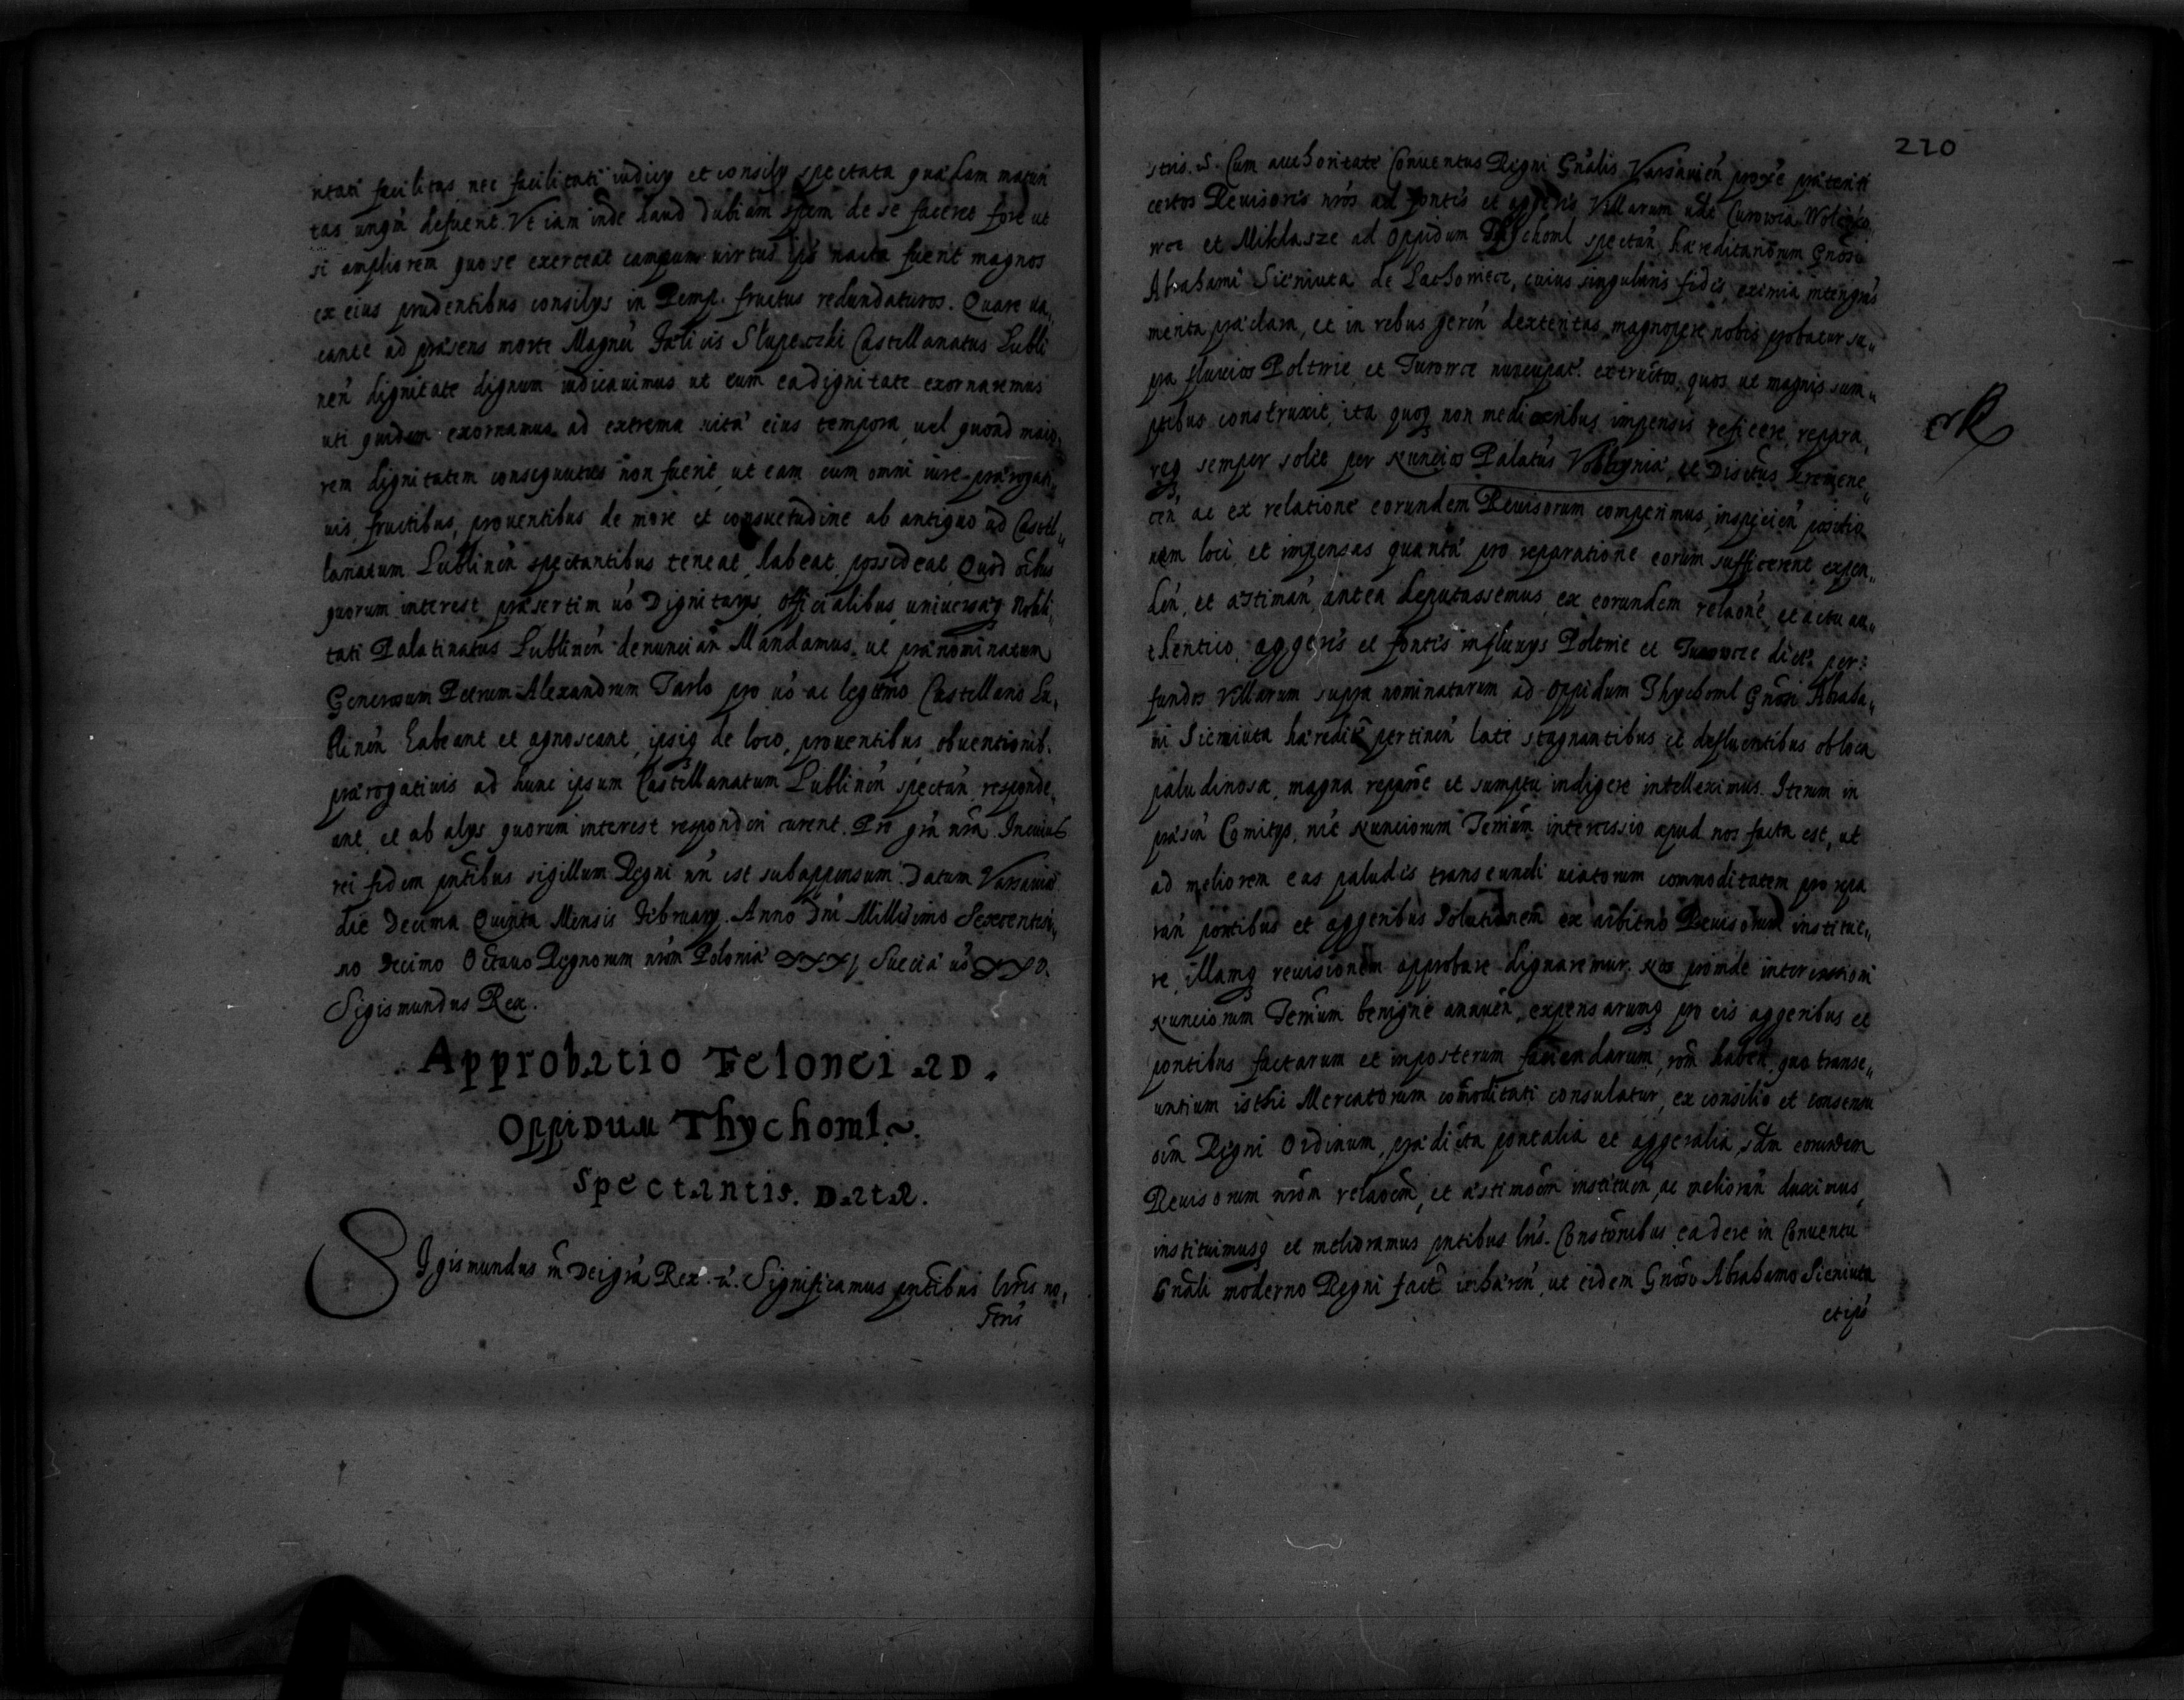 ritati facilitas nec facilitati iudicy et consily spectata quædam maturi
tas unqã defuerit. Ut iam inde haud dubiam spem de se faceret fore ut
si ampliorem quo se exerceat campum virtus ipś nacta fuerit magnos
ex eius prudentibus consilys in Remp. fructus redundaturos. Quare va,
cante ad præsens morte Magnci Felicis Slupeczki Castellanatus Lubli
neń dignitate dignum iudicavimus ut eum ea dignitate exornaremus
uti quidem exornamus ad extrema vitæ eius tempora, vel quoad maio,
rem dignitatem consequutus non fuerit, ut eam cum omni iure prærogati,
vis, fructibus, proventibus de more et consuetudine ab antiquo ad Castel,,
lanatum Lublineń spectantibus teneat, habeat, possideat. Quod oībus
quorum interest, præsertim vō Dignitarys, Officialibus, universæq Nobili,
tati Palatinatus Lublineń denunciań Mandamus, ut prænominatum
Generosum Petrum Alexandrum Tarlo pro vō ac legitimo Castellano Lu,
blineń habeant et agnoscant, ipsiq de loco, proventibus, obventionib.
prærogativis ad hunc ipsum Castellanatum Lublineń spectań responde,
ant, et ab alys quorum interest responderi curent. Pro grã nrã. In cuius
rei fidem pntibus sigillum Regni nrī est subappensum. Datum Varsaviæ
die Decima Quinta Mensis February. Anno Dni Millesimo Sexcentesi,,
mo Decimo Octavo Regnorum nrōm Poloniæ XXXI Sueciæ vō XXV.
Sigismundus Rex.
Approbatio Telonei ad
Oppidum Thychoml
spectantis. Data.
Sigismundus III Dei grã Rex. Significamus pntibus lrīs no,
strīs
220
stris. Cum authoritate Conventus Regni Gnālis Varsavień proxē præteriti
certos Revisores nrōs ad pontes et aggeres Villarum
et Miklasze ad Oppidum Thychoml spectań hæreditariorum Gnōsi
Abrahami Sieniuta de Lachowce, cuius singularis fides, eximia integris
merita præclara, et in rebus gereń dexteritas magnopere nobis probatur su,,
pra fluvios Poltwie, et nuncupat. extructos, quos ut magnis sum,,
ptibus construxit, ita quoq non mediocribus impensis reficere, repara,
req semper solet per Nuncios Palatus Volhyniæ, et Disctus Kremene,,
ceń ac ex relatione eorundem Revisorum comperimus, inspicień positio
nem loci, et impensas quantæ pro reparatione eorum sufficerent expen,,
deń, et æstimań, antea deputassemus, ex eorundem relaōne, et actu au,,
thentico, aggeres et pontes influxys Poltwie et dict. per
fundos Villarum supra nominatarum ad Oppidum Thychoml Gnōsi Abraha,,
mi Sieniuta hæredit. pertineń late stagnantibus et defluentibus ob loca
paludinosa, magna reparōe et sumptu indigere intelleximus. Iterum in
præseń Comitys, nrē Nunciorum Terrūm intercessio apud nos facta est, ut
ad meliorem eas paludes transeundi viatorum commoditatem pro repa
rań pontibus et aggeribus Solutionem ex arbitrio Revisorum institue,,
re, illamq revisionem approbare dignaremur. Nos proinde intercessioni
Nunciorum Terrūm benigne annueń, expensarumq pro eis aggeribus et
pontibus factarum et inposterum faciendarum, rōm habeń, quo transe,,
untium isthic Mercatorum comōditati consulatur, ex consilio et consensu
oīm Regni Ordinum, prædicta pontalia et aggeralia, sdm eorundem
Revisorum nrōm relaōem, et æstimōēm instituēn, ac meliorań duximus,
instituimusq et melioramus pntibus lrīs. Constōnibus ea de re in Conventu
Gnāli moderno Regni fact. inhæreń, ut eidem Gnōso Abrahamo Sieniuta
et ipś